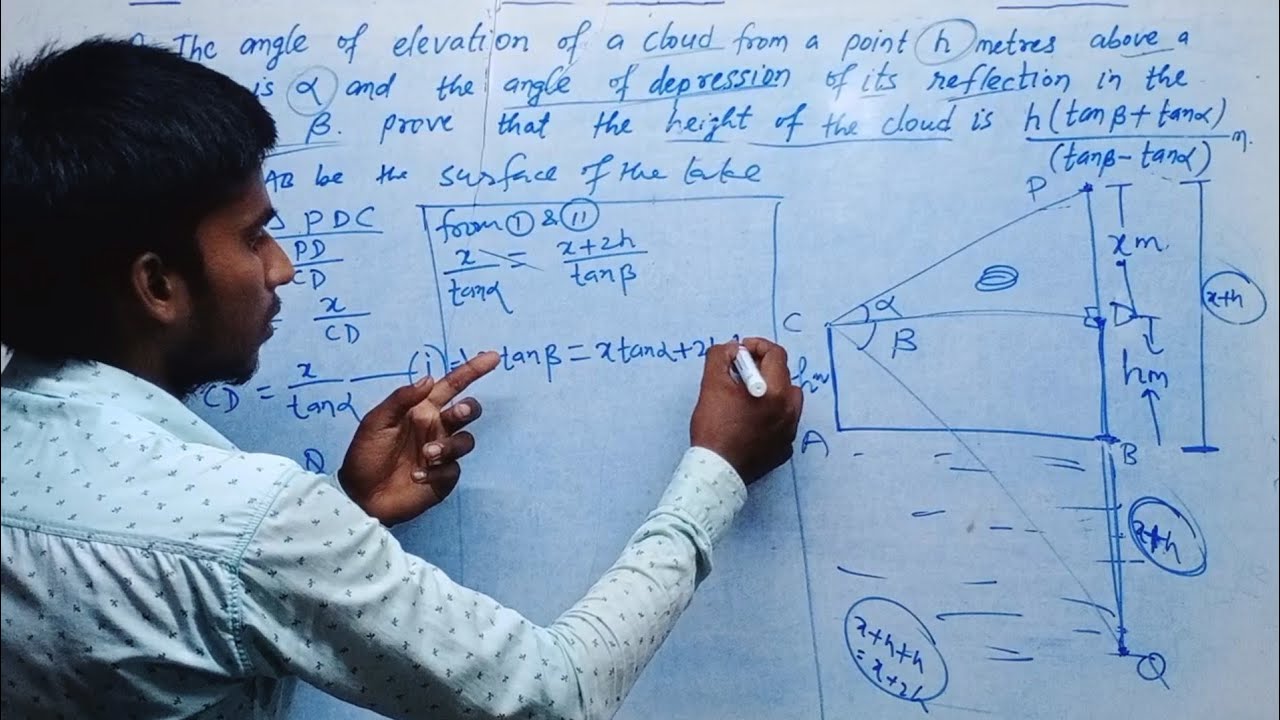 The angle of elevation of a cloud from a point h metres above a
is α and the angle of depression of its reflection in the
β. prove that the height of the cloud is h(tanβ + tanα)/(tanβ - tanα) m.
AB be the surface of the lake
Δ PDC
PD/CD
x/CD
CD = x/tanα —(i)
from (I) & (II)
x/tanα = x+2h/tanβ
tanβ = x tanα + 2h
P
x m
x+h
C
α
D
β
hm
hm
A
B
x+h
x+h+h
= x+2h
Q